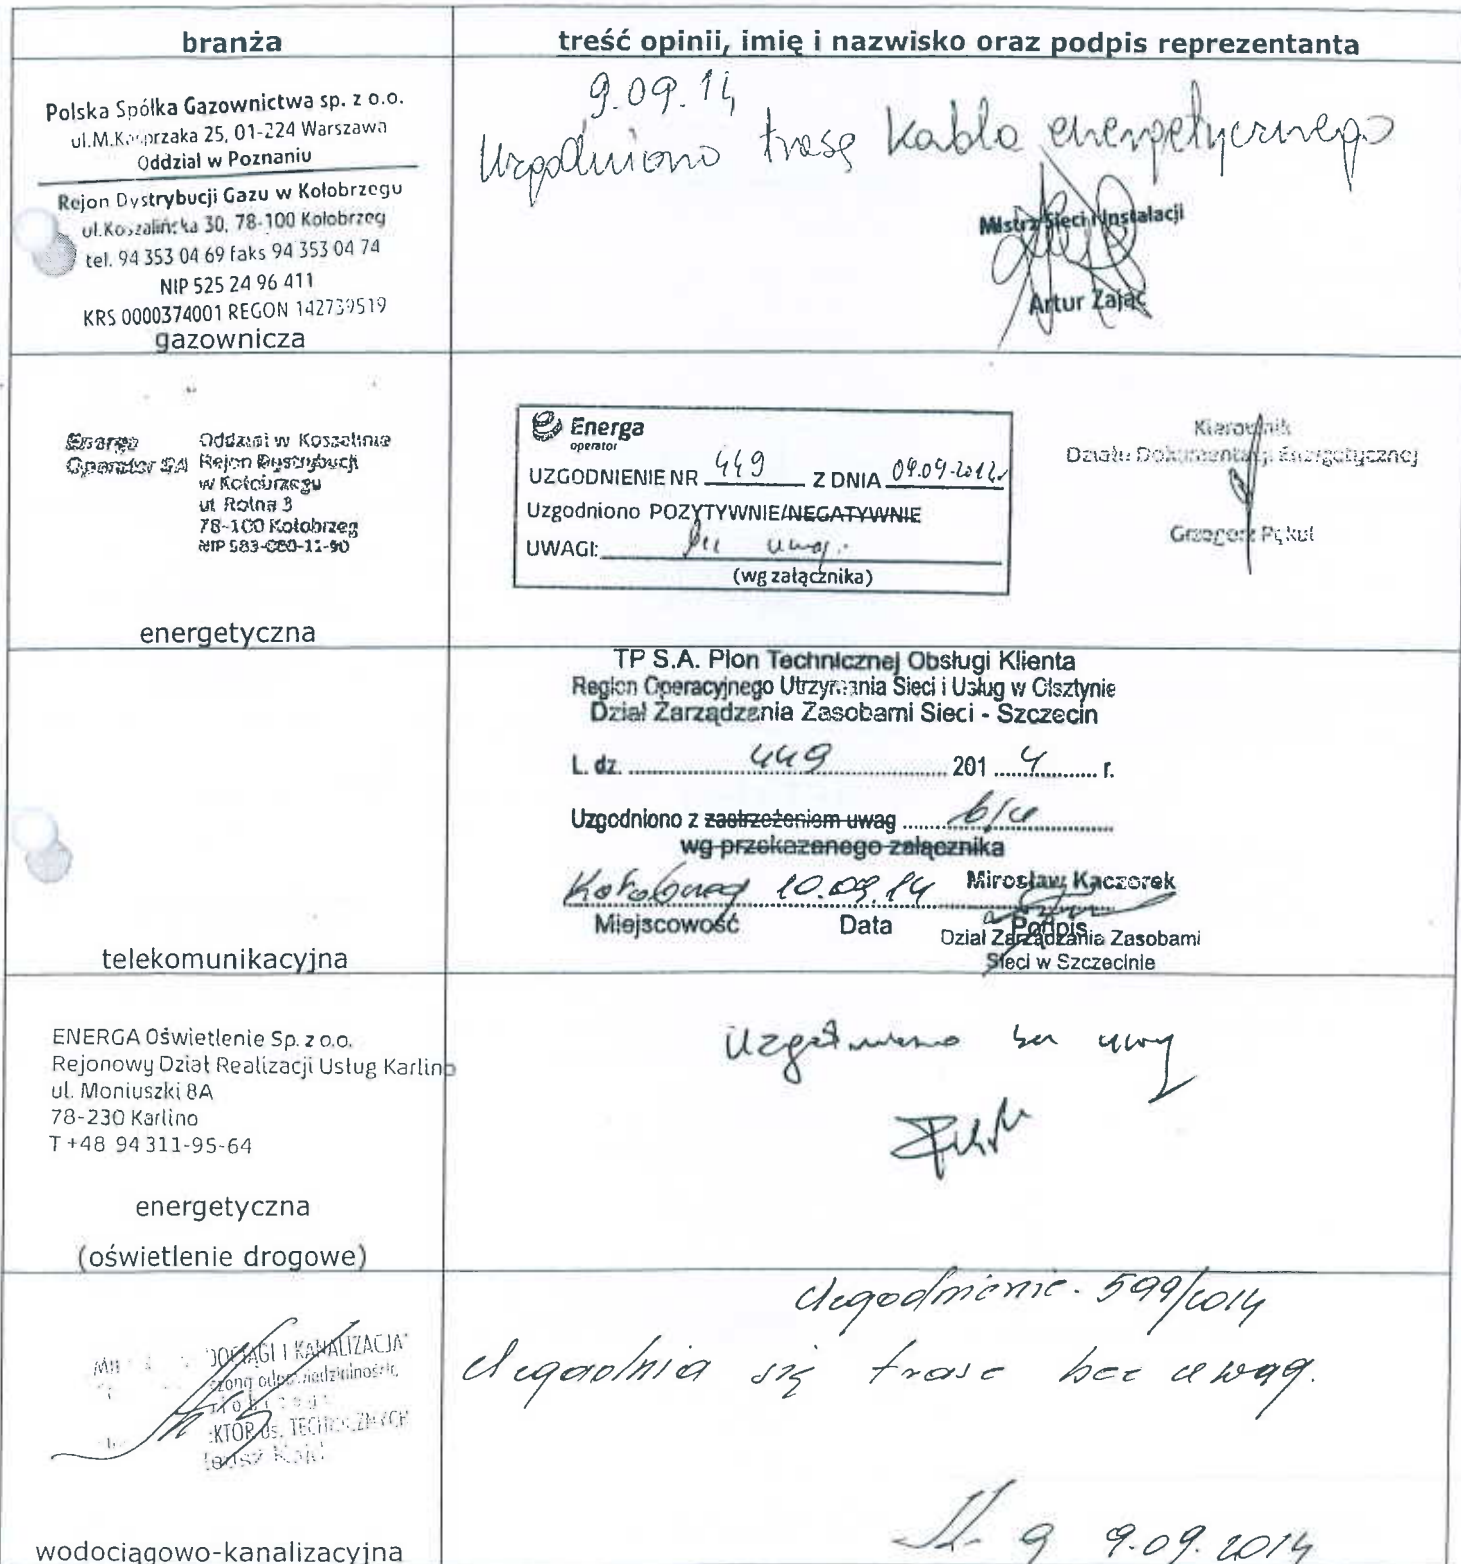 branża
treść opinii, imię i nazwisko oraz podpis reprezentanta
Polska Spółka Gazownictwa sp. z o.o.
ul.M.Kasprzaka 25, 01-224 Warszawa
Oddział w Poznaniu
Rejon Dystrybucji Gazu w Kołobrzegu
ul.Koszalińska 30, 78-100 Kołobrzeg
tel. 94 353 04 69 faks 94 353 04 74
NIP 525 24 96 411
KRS 0000374001 REGON 142739519
gazownicza
9.09.14
Uzgodniono trasę kabla energetycznego
Mistrz Sieci i Instalacji
Artur Zając
Energa Oddział w Koszalinie
Operator SA Rejon Dystrybucji
w Kołobrzegu
ul Rolna 3
78-100 Kołobrzeg
NIP 583-000-11-90
energetyczna
Energa
operator
UZGODNIENIE NR 449 Z DNIA
Uzgodniono POZYTYWNIE/NEGATYWNIE
UWAGI: bez uwag.
(wg załącznika)
Kierownik
Działu Dokumentacji Energetycznej
Grzegorz Pękul
TP S.A. Pion Technicznej Obsługi Klienta
Region Operacyjnego Utrzymania Sieci i Usług w Olsztynie
Dział Zarządzania Zasobami Sieci - Szczecin
L. dz. 449 201 4 r.
Uzgodniono z zastrzeżeniem uwag b/u
wg przekazanego załącznika
Kołobrzeg 10.09.14 Mirosław Kaczorek
Miejscowość Data Podpis
Dział Zarządzania Zasobami
Sieci w Szczecinie
telekomunikacyjna
ENERGA Oświetlenie Sp. z o.o.
Rejonowy Dział Realizacji Usług Karlino
ul. Moniuszki 8A
78-230 Karlino
T +48 94 311-95-64
energetyczna
(oświetlenie drogowe)
Uzgodniono bez uwag
WODOCIĄGI I KANALIZACJA"
odpowiedzialnością
ds. TECHNICZNYCH
wodociągowo-kanalizacyjna
Uzgodnienie. 599/2014
Uzgadnia się trasę bez uwag.
9.09.2014